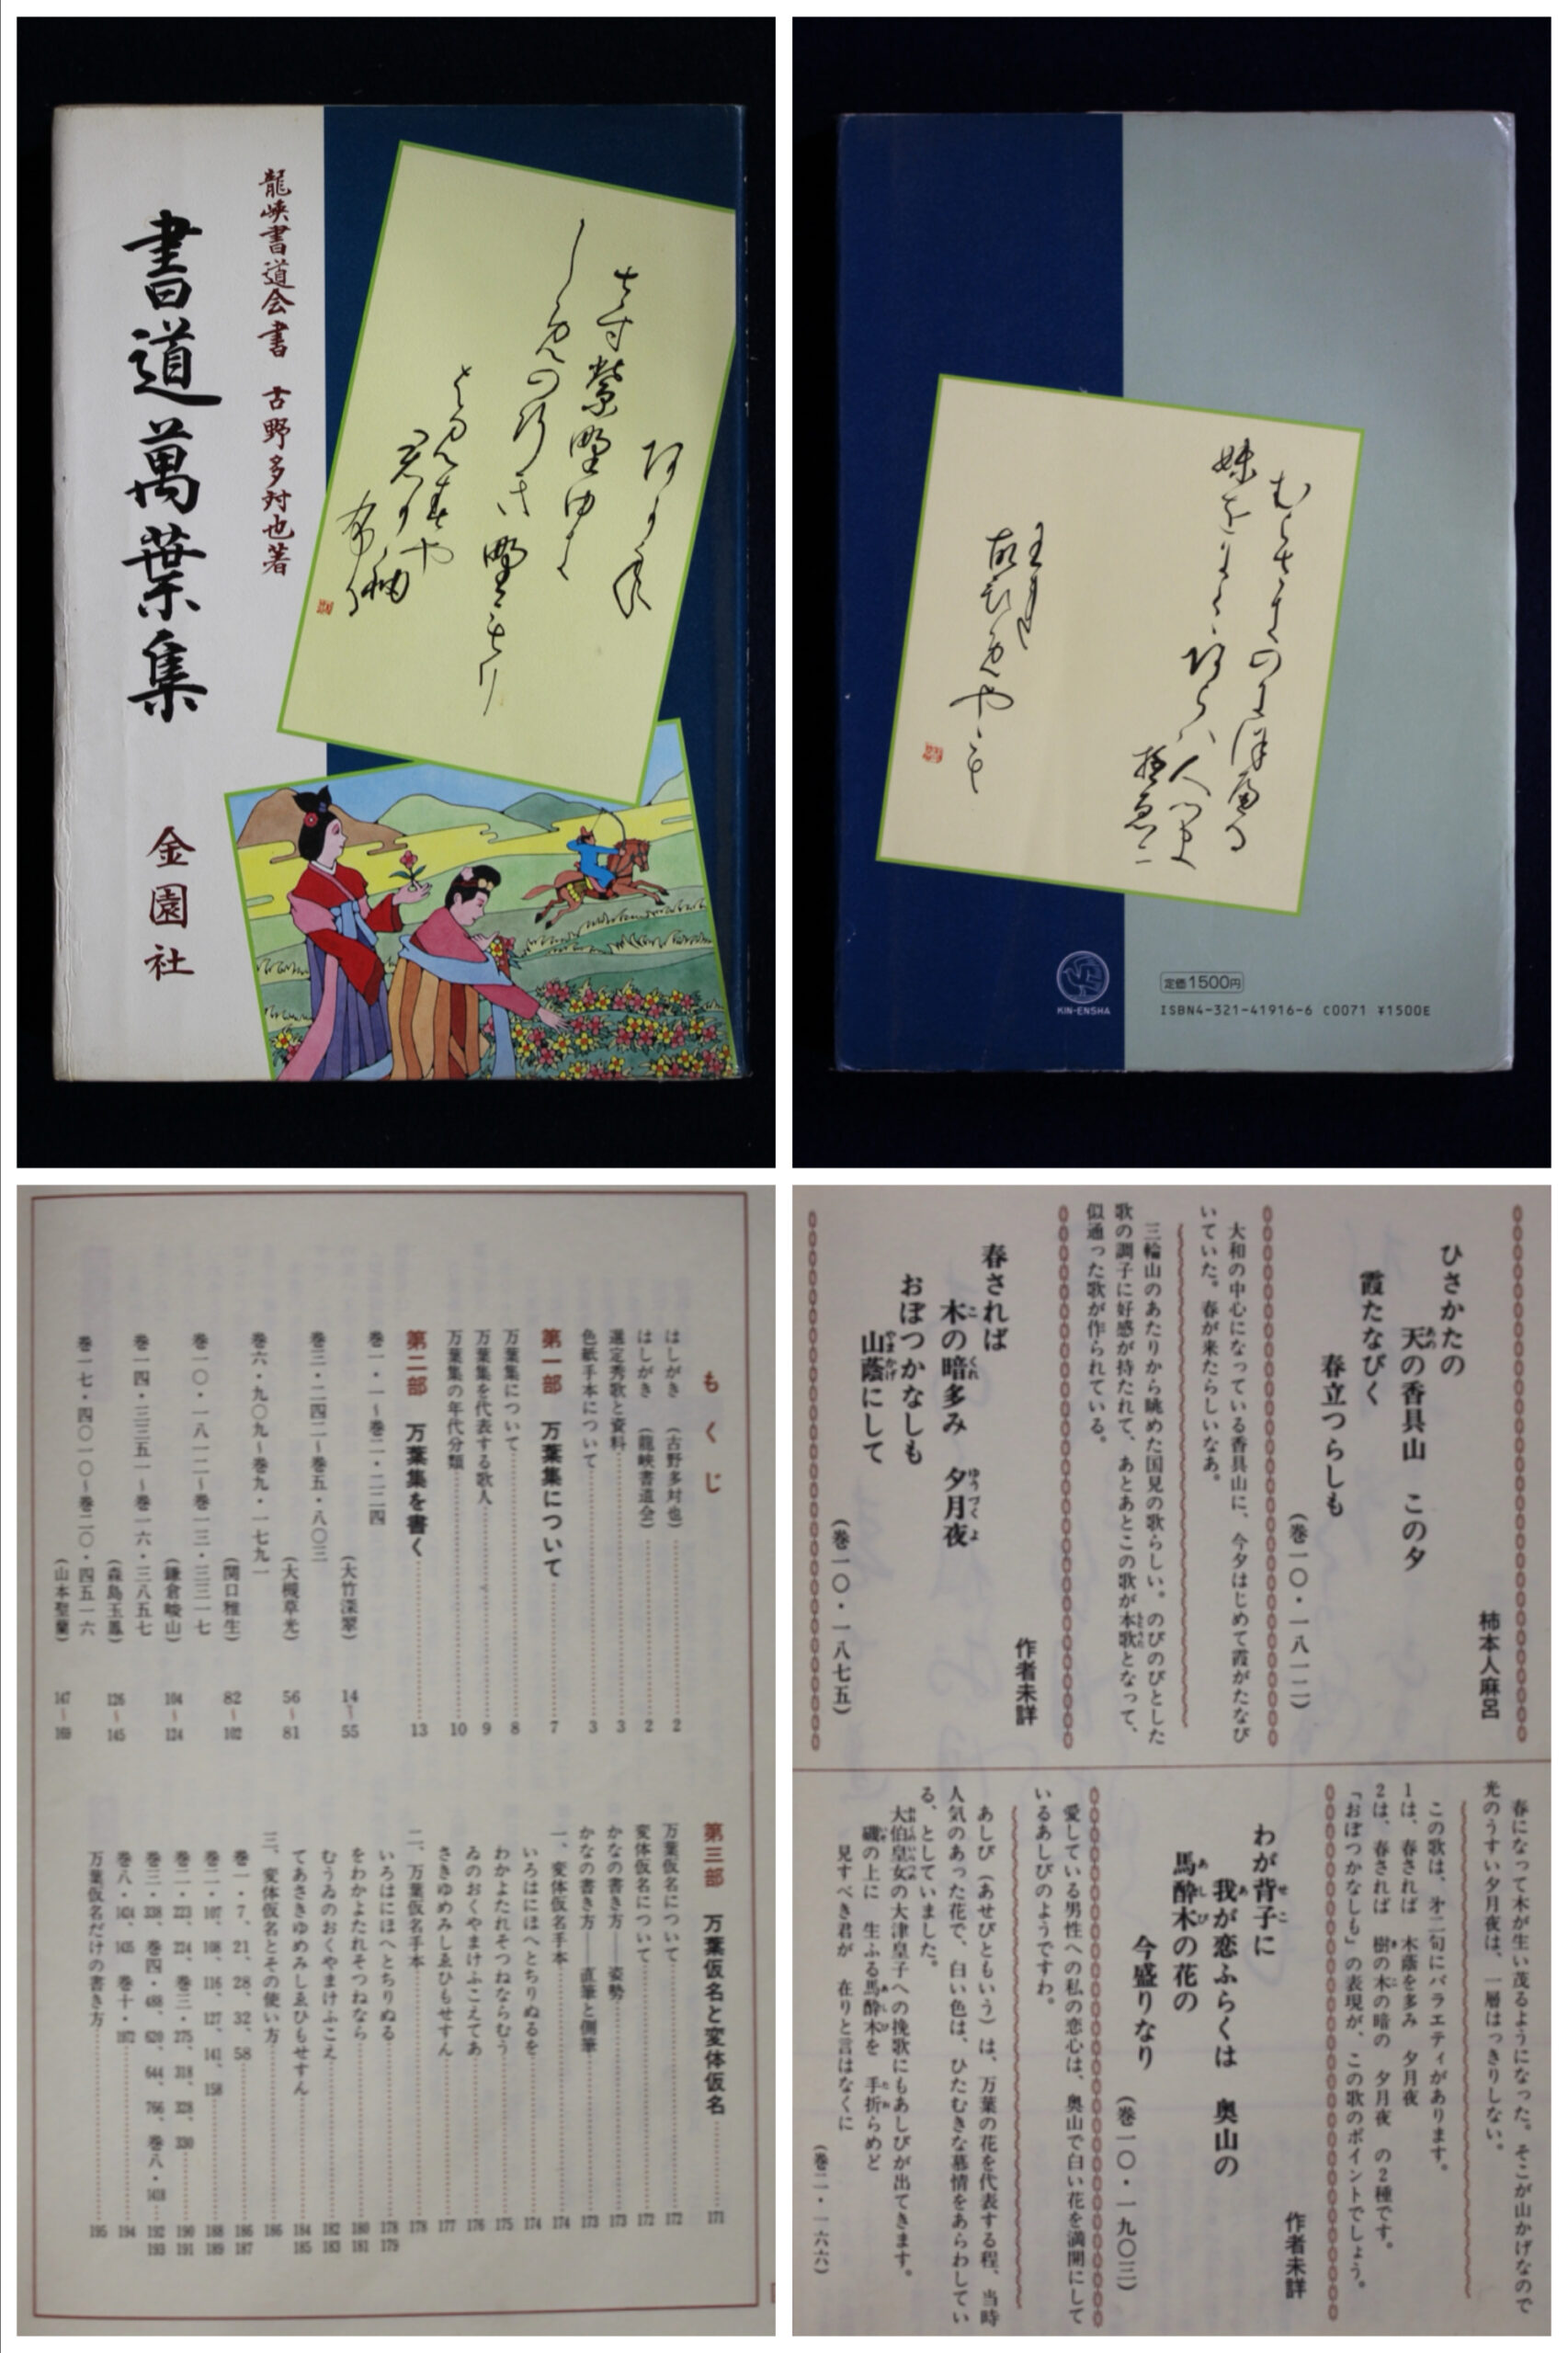 龍峡書道会書 古野多対也著
書道萬葉集
金園社
KIN-ENSHA
定価1500円
ISBN4-321-41916-6 C0071 ¥1500E
もくじ
はしがき (古野多対也) 2
はしがき (龍峡書道会) 2
選定秀歌と資料 3
色紙手本について 3
第一部 万葉集について 7
万葉集について 8
万葉集を代表する歌人 9
万葉集の年代分類 10
第二部 万葉集を書く 13
巻一・一～巻二・二二四
(大竹深翠) 14～55
巻三・二四二～巻五・八〇三
(大槻草光) 56～81
巻六・九〇九～巻九・一七九一
(関口雅生) 82～102
巻一〇・一八一二～巻一三・三三一七
(鎌倉峻山) 104～124
巻一四・三三五一～巻一六・三八五七
(森島玉鳳) 126～145
巻一七・四〇一〇～巻二〇・四五一六
(山本聖葉) 147～169
第三部 万葉仮名と変体仮名 171
万葉仮名について 172
変体仮名について 172
かなの書き方──姿勢 173
かなの書き方──直筆と側筆 173
一、変体仮名手本 174
いろはにほへとちりぬるを 174
わかよたれそつねならむう 175
ゐのおくやまけふこえてあ 176
さきゆめみしゑひもせすん 177
二、万葉仮名手本 178
いろはにほへとちりぬる 178 179
をわかよたれそつねなら 180 181
むうゐのおくやまけふこえ 182 183
てあさきゆめみしゑひもせすん 184 185
三、変体仮名とその使い方 186
巻一・7、21、28、32、58 186 187
巻二・107、108、116、127、141、158 188 189
巻二・223、224、巻三・275、318、328、330 190 191
巻三・338、巻四・488、620、644、766、巻八・1418 192 193
巻八・1424、1435 巻十・1972 194
万葉仮名だけの書き方 195
柿本人麻呂
ひさかたの
天の香具山 この夕
霞たなびく
春立つらしも
(巻一〇・一八一二)
大和の中心になっている香具山に、今夕はじめて霞がたなび
いていた。春が来たらしいなあ。
三輪山のあたりから眺めた国見の歌らしい。のびのびとした
歌の調子に好感が持たれて、あとあとこの歌が本歌となって、
似通った歌が作られている。
作者未詳
春されば
木の暗多み 夕月夜
おぼつかなしも
山蔭にして
(巻一〇・一八七五)
春になって木が生い茂るようになった。そこが山かげなので
光のうすい夕月夜は、一層はっきりしない。
この歌は、第二句にバラエティがあります。
1は、春されば 木蔭を多み 夕月夜
2は、春されば 樹の木の暗の 夕月夜 の2種です。
「おぼつかなしも」の表現が、この歌のポイントでしょう。
作者未詳
わが背子に
我が恋ふらくは 奥山の
馬酔木の花の
今盛りなり
(巻一〇・一九〇三)
愛している男性への私の恋心は、奥山で白い花を満開にして
いるあしびのようですわ。
あしび(あせびともいう)は、万葉の花を代表する程、当時
人気のあった花で、白い色は、ひたむきな慕情をあらわしてい
る、としていました。
大伯皇女の大津皇子への挽歌にもあしびが出てきます。
磯の上に 生ふる馬酔木を 手折らめど
見すべき君が 在りと言はなくに
(巻二・一六六)